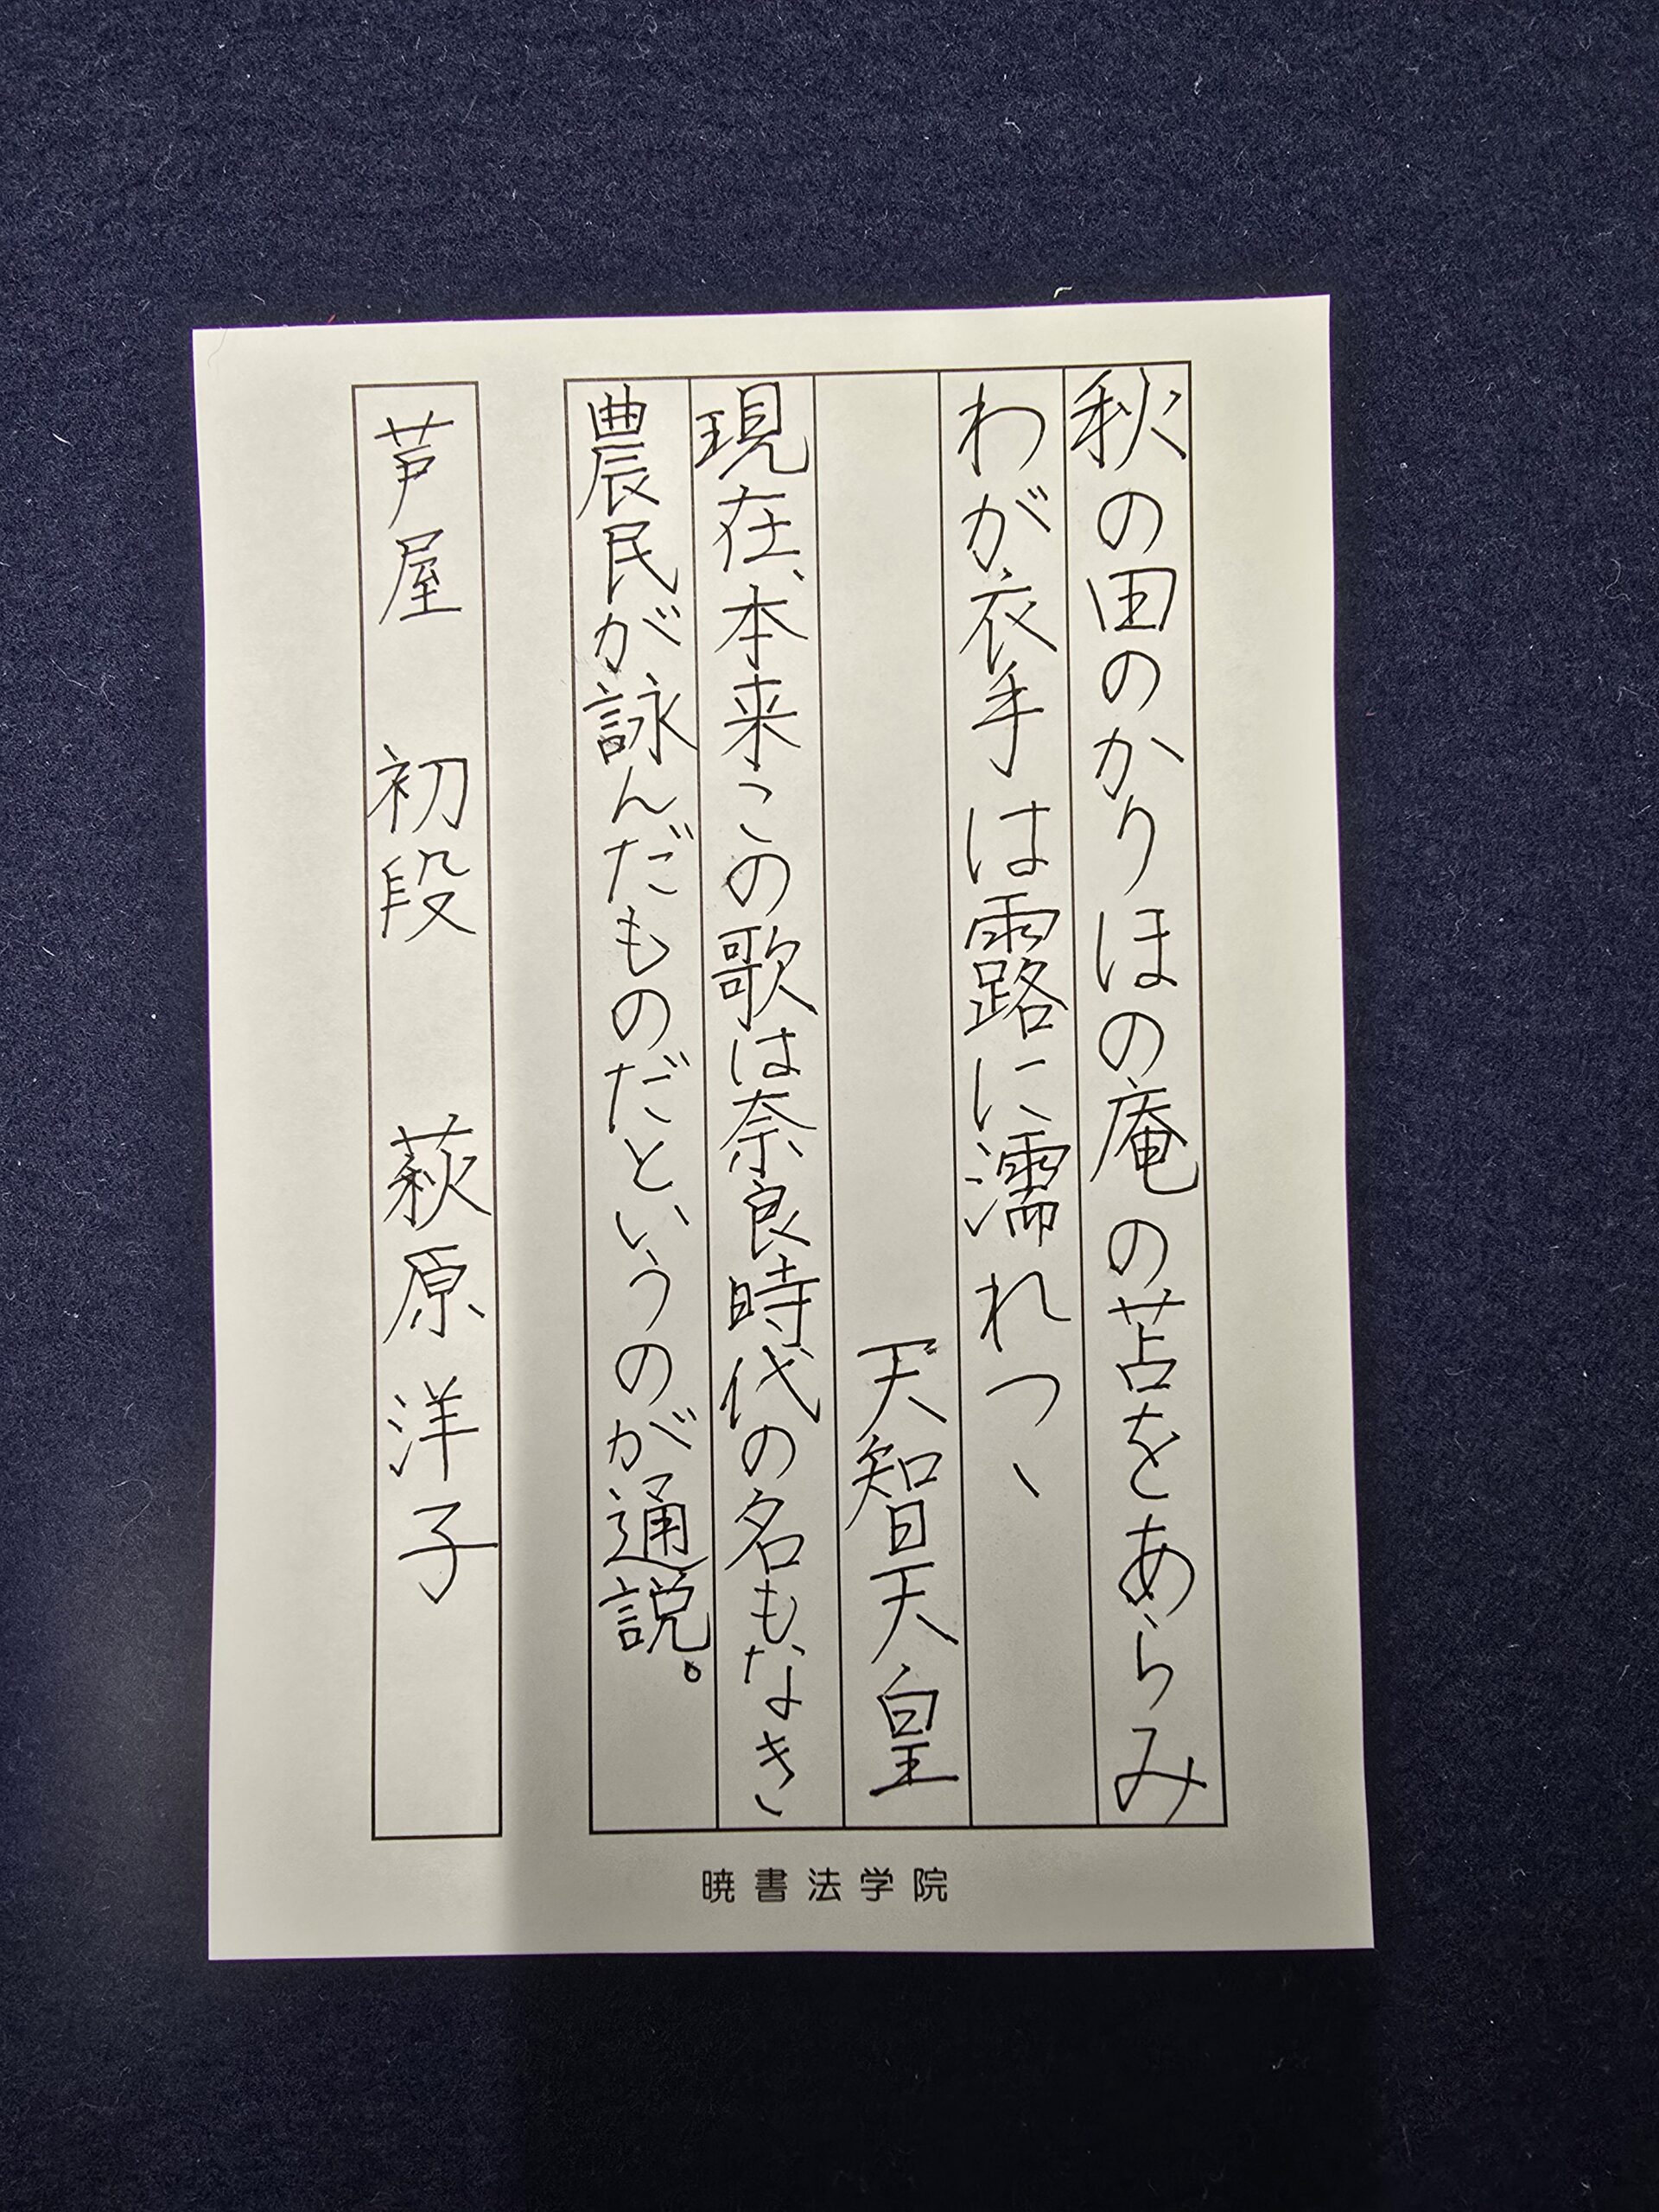 秋の田のかりほの庵の苫をあらみ
わが衣手は露に濡れつヽ
天智天皇
現在、本来この歌は奈良時代の名もなき、
農民が詠んだものだというのが通説。
芦屋 初段 萩原洋子
暁書法学院